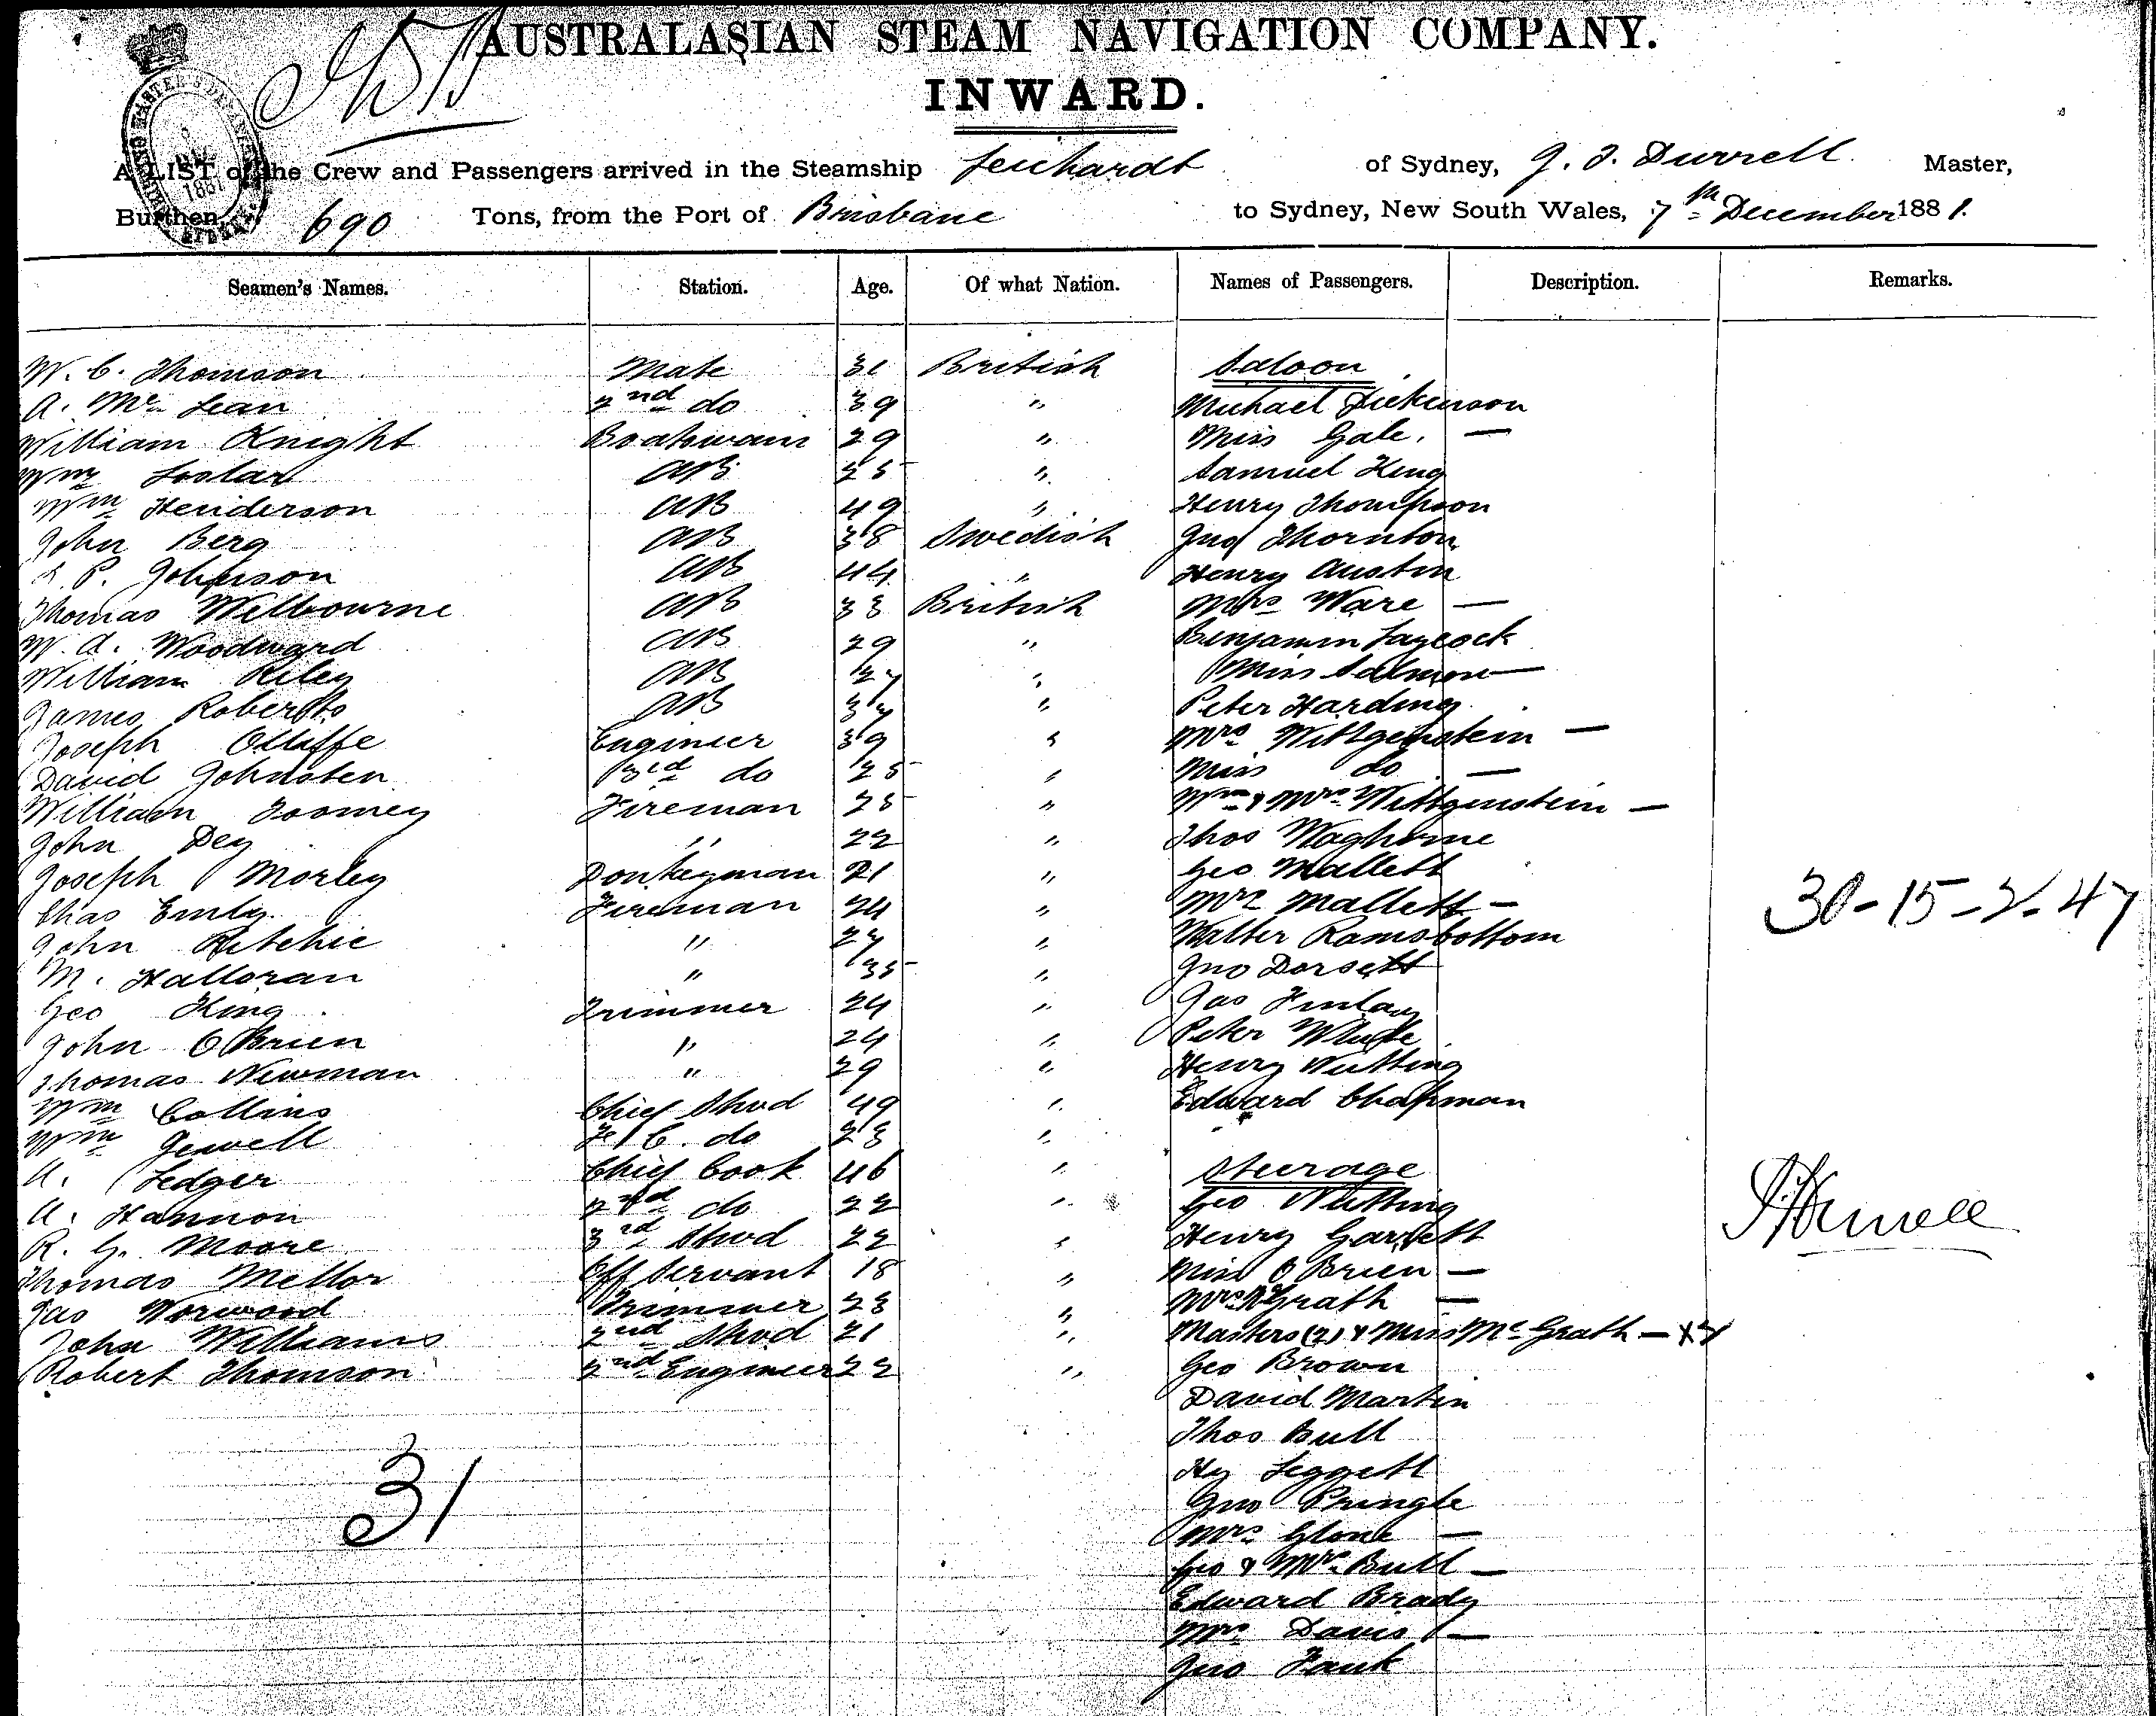 AUSTRALASIAN STEAM NAVIGATION COMPANY.
INWARD.
A LIST of the Crew and Passengers arrived in the Steamship Leichardt of Sydney, J. T. Durrell Master,
Burthen 690 Tons, from the Port of Brisbane to Sydney, New South Wales, 7th December 1881.
Seamen's Names. Station. Age. Of what Nation. Names of Passengers. Description. Remarks.
W. C. Thomson Mate 31 British Saloon
A. Mc Lean 2nd do 39 " Michael Dickinson
William Knight Boatswain 29 " Miss Gale. —
Wm AB 25 " Samuel King
Wm Henderson AB 49 " Henry Thompson
John Berg AB 38 Swedish Jno Thornton
P. Johnson AB 44 " Henry Austin
Thomas Welbourne AB 33 British Mrs Ware —
W. A. Woodward AB 29 " Benjamin Laycock
William Riley AB 27 " Miss Salmon —
James Roberts AB 34 " Peter Harding
Joseph Olliffe Engineer 39 " Mrs Wittgenstein —
David Johnston 3rd do 25 " Miss do —
William Toomey Fireman 25 " Wm & Mrs Wittgenstein —
John Dey " 22 " Thos Waghorne
Joseph Morley Donkeyman 21 " Geo Mallett
Chas Emly Fireman 24 " Mrs Mallett —
John Ritchie " 27 " Walter Ramsbottom
30-15-2-47
M. Halloran " 35 " Jno Dorsett
Geo King Trimmer 24 " Jas Finlay
John O'Brien " 24 " Peter White
Thomas Newman " 29 " Henry Nutting
Wm Collins Chief Stwd 49 " Edward Chapman
Wm Jewell F. C. do 23 "
A. Ledger Chief Cook 46 " Steerage
A. Hannon 2nd do 22 " Geo Nutting
R. G. Moore 3rd Stwd 22 " Henry Garrett
Thomas Mellor Off Servant 18 " Miss O'Brien —
Jas Norwood Trimmer 23 " Mrs McGrath —
John Williams 2nd Stwd 21 " Masters (2) & Miss Mc Grath —
Robert Thomson 2nd Engineer 22 " Geo Brown
David Martin
Thos Bull
31
Hy Leggett
Jno Pringle
Mrs Glone —
Geo & Mrs Bull —
Edward Brady
Mrs Davis —
Jno Fauk